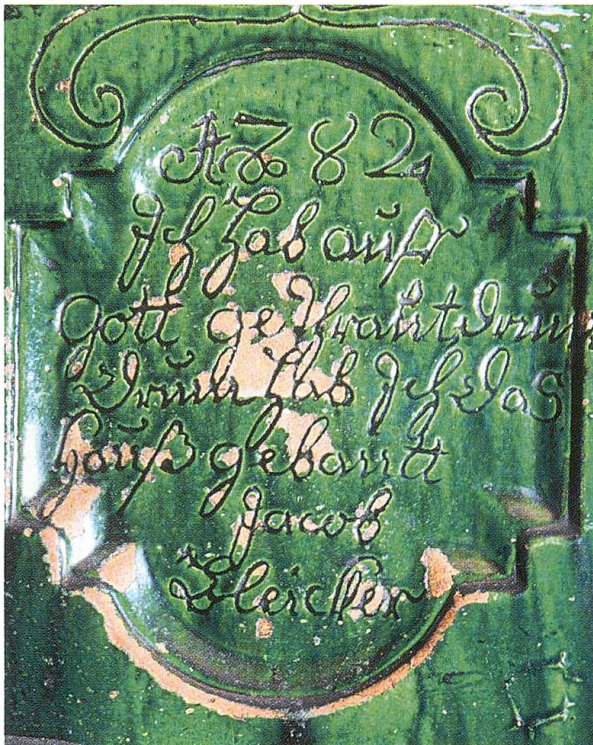 A 782
Jch hab auff
gott gethraut drum
drum hab Jch das
hauß gebautt
Jacob
Bleicker